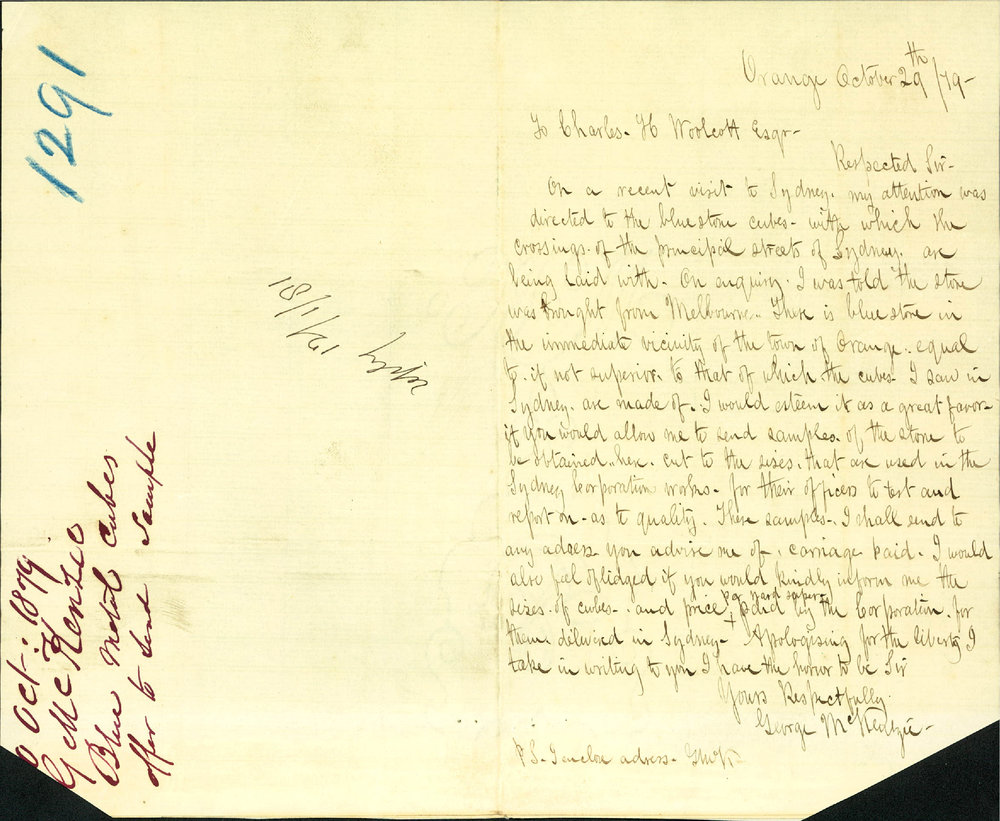 1291
Oct: 1879
G McKenzie
Blue Metal Cubes
offer to send sample
Orange October 29th/79-
To Charles. H Woolcott Esqr-
Respected Sir-
On a recent visit to Sydney. my attention was
directed to the bluestone cubes- with which the
crossings. of the principal streets of Sydney. are
being laid with. On enquiry. I was told the stone
was brought from Melbourne. There is bluestone in
the immediate vicinity of the town of Orange. equal
to. if not superior. to that of which the cubes I saw in
Sydney. are made of. I would esteem it as a great favor-
if you would allow me to send samples. of the stone to
be obtained, here. cut to the sizes. that are used in the
Sydney Corporation works. for their officers to test and
report on- as to quality. These samples. I shall send to
any adress you advise me of. carriage paid. I would
also feel oblidged if you would kindly inform me the
sizes. of cubes. and price per yard super paid by the Corporation. for
them. delivered in Sydney- Apologising for the liberty I
take in writing to you I have the honor to be Sir
Yours Respectfully.
George McKenzie-
P S. I enclose adress. GMcK